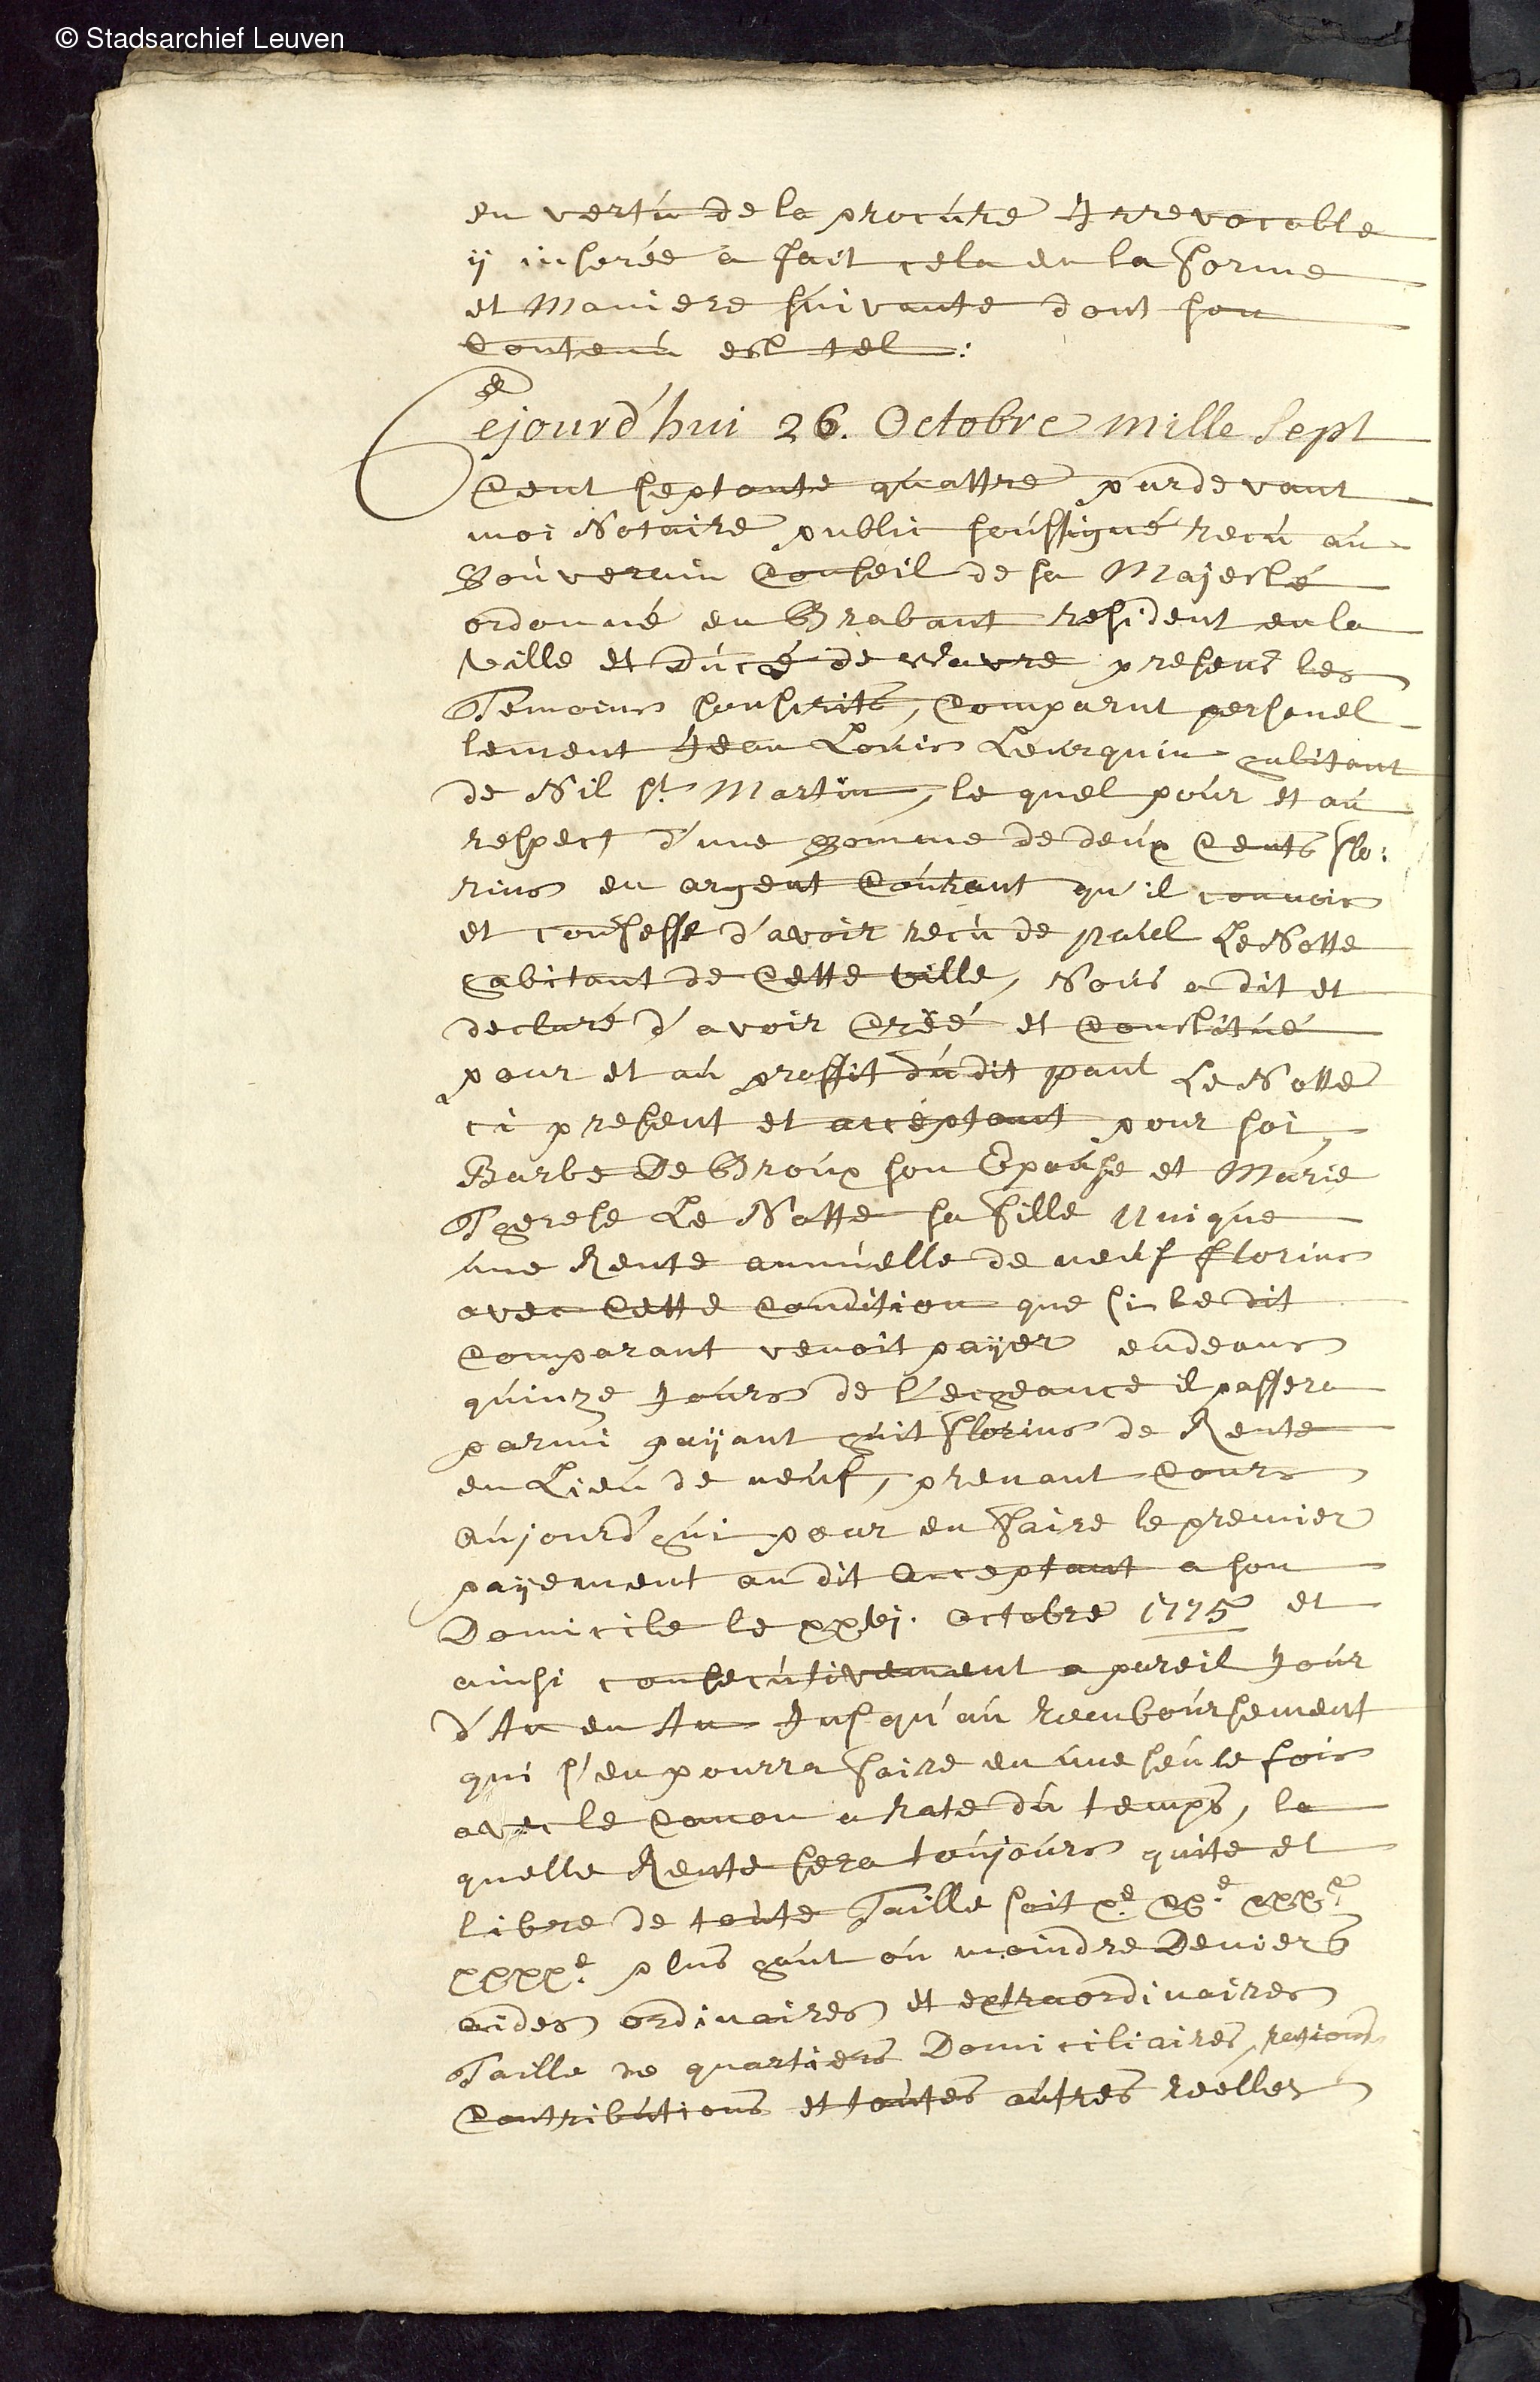 © Stadsarchief Leuven
en vertu de la procure Irrevocable
ÿ inserée a fait cela en la forme
et Maniere suivante dont son
Contenu est tel:
Cejourd'hui 26. Octobre mille Sept
Cent septante quattre pardevant
moi Notaire public soussigné recu au
Souverain Conseil de sa Majesté
ordonné en Brabant resident en la
ville et Ducé de Wavre presens les
Temoins souscrits, Comparut personel
lement Jean Louis Leurquin habitant
de Nil st Martin, le quel pour et au
respect d'une somme de deux Cents flo:
rins en argent Courant qu'il connois
et confesse d'avoir recu de paul Le Notte
habitant de Cette ville, Nous a dit et
declaré d'avoir Créé et Constitué
pour et au proffit dudit paul Le Notte
ci present et acceptant pour soi,
Barbe De Broux son Epouse et Marie
Therese Le Notte sa fille Unique
une Rente annuelle de neuf florins
avec Cette Condition que si le dit
Comparant venoit payer endeans
quinze Jours de l'echeance il passera
parmi payant huit florins de Rente
en Lieu de neuf, prenant Cours
aujourd'hui pour en faire le premier
payement au dit Acceptant a son
Domicile le xxvj. Octobre 1775 et
ainsi consecutivement a pareil Jour
d'An en An Jusqu'au remboursement
qui s'en pourra faire en une seule fois
avec le Canon a rate du temps, la
quelle Rente sera toujours quite et
libre de toute Taille soit xe. xxe. xxxe.
xxxxe. plus haut ou moindre Deniers
aides ordinaires et extraordinaires
Taille de quartiers Domiciliaires,
Contributions et toutes autres reelles